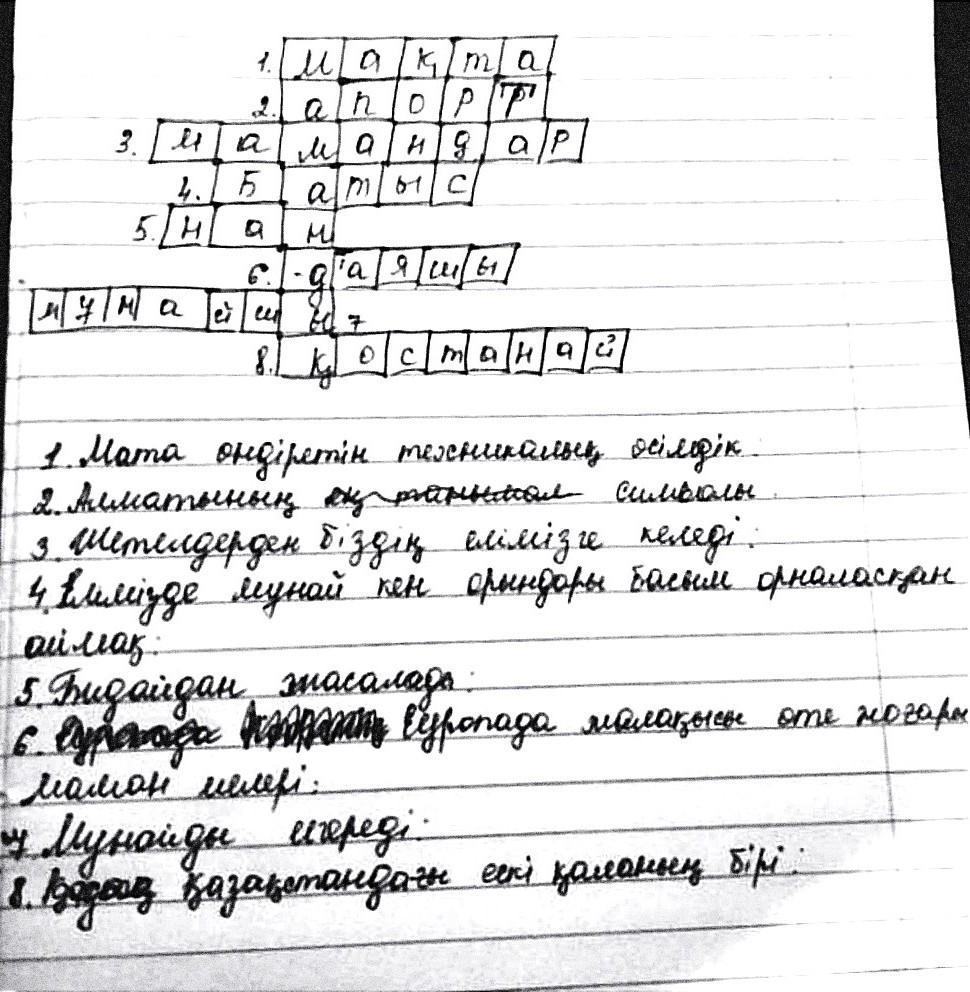 1. м а қ т а
2. а п о р т
3. м а м а н д а р
4. Б а т ы с
5. н а н
6. д а я ш ы
м ұ н а й ш ы 7
8. қ о с т а н а й
1. Мата өндіретін техникалық өсілдік.
2. Алматының ең танымал символы.
3. Шетелдерден біздің елімізге келеді:
4. Елімізде мұнай кен орындары басым орналасқан
аймақ:
5. Бидайдан жасалады:
6. Еуропада Еуропада жалақысы өте жоғары
маман иелері:
7 Мұнайды игереді:
8. Қазақстандағы ескі қаланың бірі: